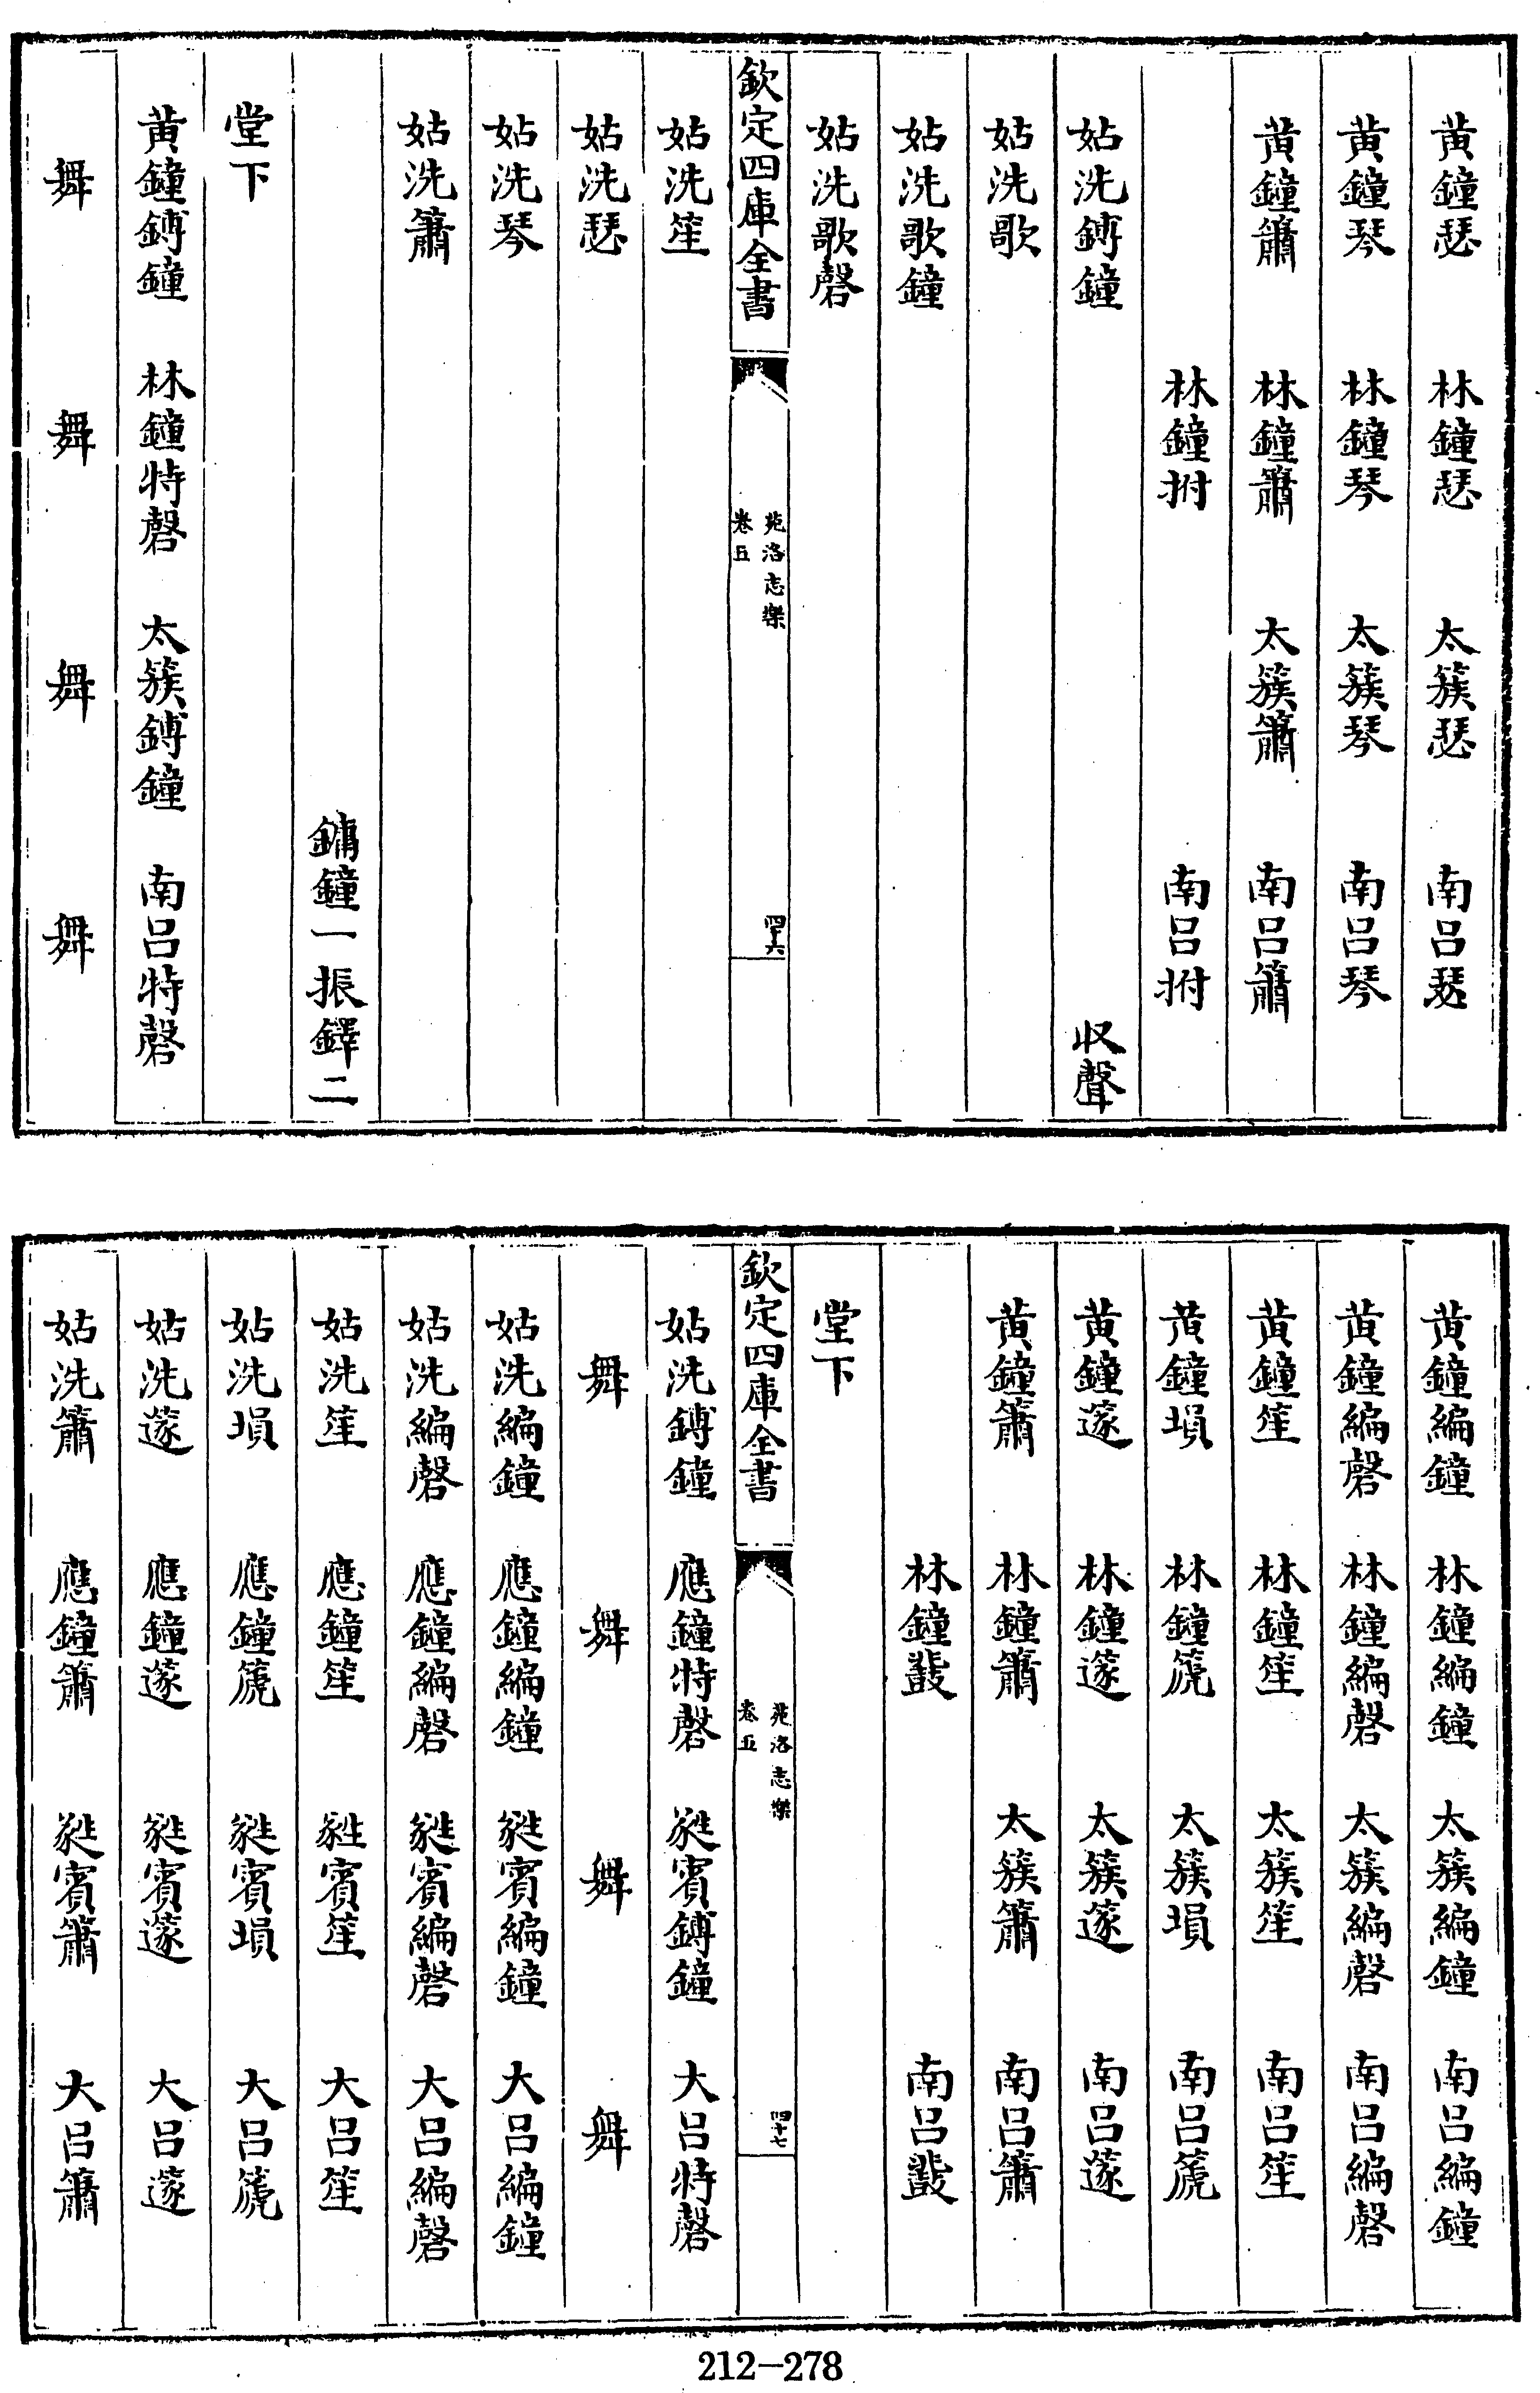 黄鐘瑟　林鐘瑟　太簇瑟　南呂瑟
黄鐘琴　林鐘琴　太簇琴　南呂琴
黄鐘簫　林鐘簫　太簇簫　南呂簫
林鐘拊　南呂拊
姑洗鎛鐘　収聲
姑洗歌
姑洗歌鐘
姑洗歌磬
欽定四庫全書　苑洛志樂　卷五　四十六
姑洗笙
姑洗瑟
姑洗琴
姑洗簫
鏞鐘一振鐸二
堂下
黄鐘鎛鐘　林鐘特磬　太簇鎛鐘　南呂特磬
舞　舞　舞　舞
黄鐘編鐘　林鐘編鐘　太簇編鐘　南呂編鐘
黄鐘編磬　林鐘編磬　太簇編磬　南呂編磬
黄鐘笙　林鐘笙　太簇笙　南呂笙
黄鐘塤　林鐘篪　太簇塤　南呂篪
黄鐘篴　林鐘篴　太簇篴　南呂篴
黄鐘簫　林鐘簫　太簇簫　南呂簫
林鐘鼗　南呂鼗
堂下
欽定四庫全書　苑洛志樂　卷五　四十七
姑洗鎛鐘　應鐘特磬　蕤賓鎛鐘　大呂特磬
舞　舞　舞　舞
姑洗編鐘　應鐘編鐘　蕤賓編鐘　大呂編鐘
姑洗編磬　應鐘編磬　蕤賓編磬　大呂編磬
姑洗笙　應鐘笙　蕤賓笙　大呂笙
姑洗塤　應鐘篪　蕤賓塤　大呂篪
姑洗篴　應鐘篴　蕤賓篴　大呂篴
姑洗簫　應鐘簫　蕤賓簫　大呂簫
212-278